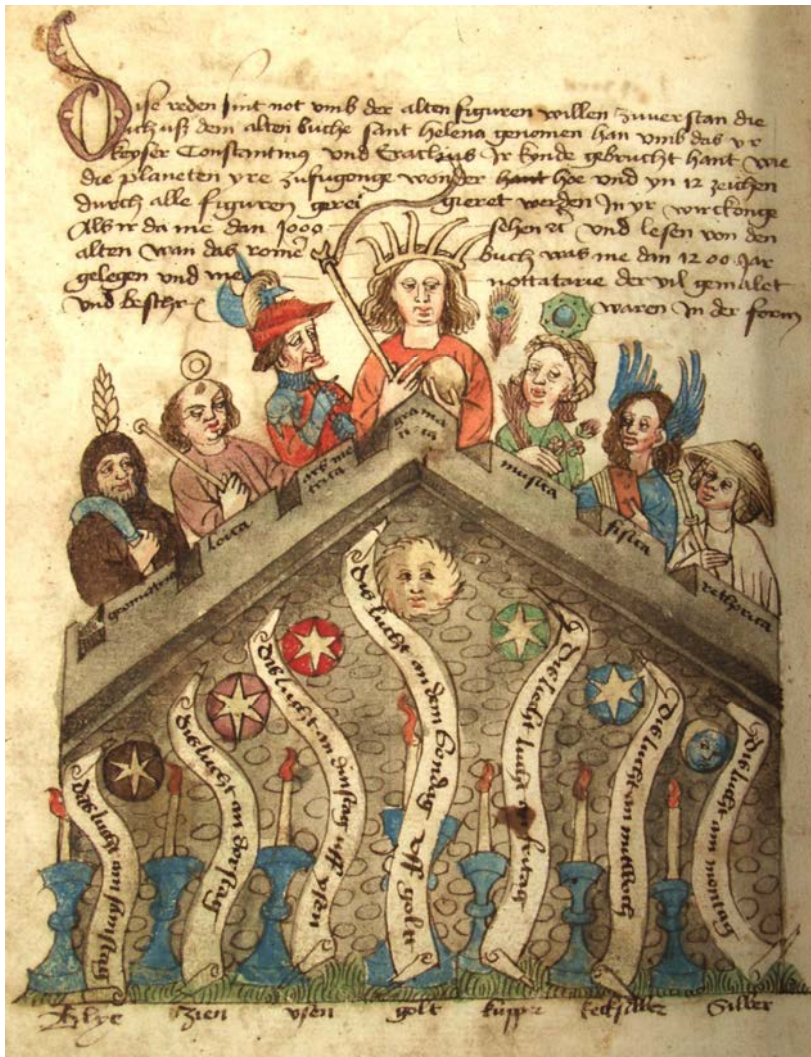 Dise reden sint not vmb der alten figuren willen zuverstan die
ich uß dem alten buche sant Helena genomen han vmb das yr
keyser Constantinus und Eraclius Ir kynde gebrucht hant wie
die planeten yre zufugonge wonder hant hoe und yn 12 zeichen
durch alle figuren gerei gieret werden In yr wirckonge
Als ir da me dan 1000 sehen und lesen von den
alten wan das rome buch was me dan 1200 Jar
gelegen und me nottatarie der vil gemalet
und beschr waren In der form
grama
tica
ars me
trica
musica
loica
fisica
geometria
rethorica
Dis lucht an samstag
Dis lucht an dorstag
Dis lucht an dinstag uff ysen
Dis lucht an dem Sondag uff golt
Die lucht
Die lucht an mitwoch
Die lucht am montag
Blye zien ysen golt kupper kecksilber Silber